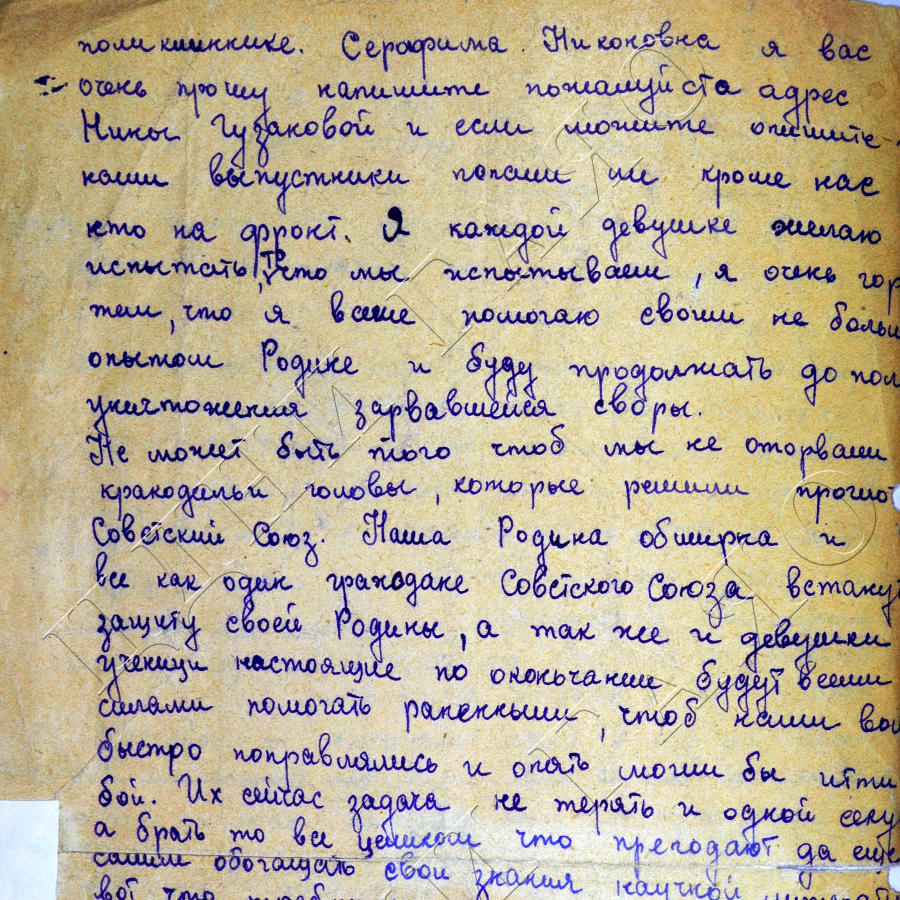 поликлиннике. Серафима Никоновна я вас
очень прошу напишите пожалуйста адрес
Нины Гузаковой и если можите опишите
наши выпустники попали ли кроме нас
кто на фронт. Я каждой девушке желаю
испытать, то что мы испытывали, я очень гор
тем, что я всеже помогаю своим не больш
опытом Родине и буду продолжать до пол
уничтожения зарвавшейся своры.
Не может быть того чтоб мы не оторвали
кракодильи головы, которые решили проглот
Советский Союз. Наша Родина обширна и
все как один граждане Советского Союза встанут
защиту своей Родины, а так же и девушки
ученици настоящие по оконьчании будут всеми
силами помогать раненным, чтоб наши вои
быстро поправлялись и опять могли бы итти
бой. Их сейчас задача не терять и одной секу
а брать то все целиком что преподают да еще
самим обогащать свои знания научной
вот что